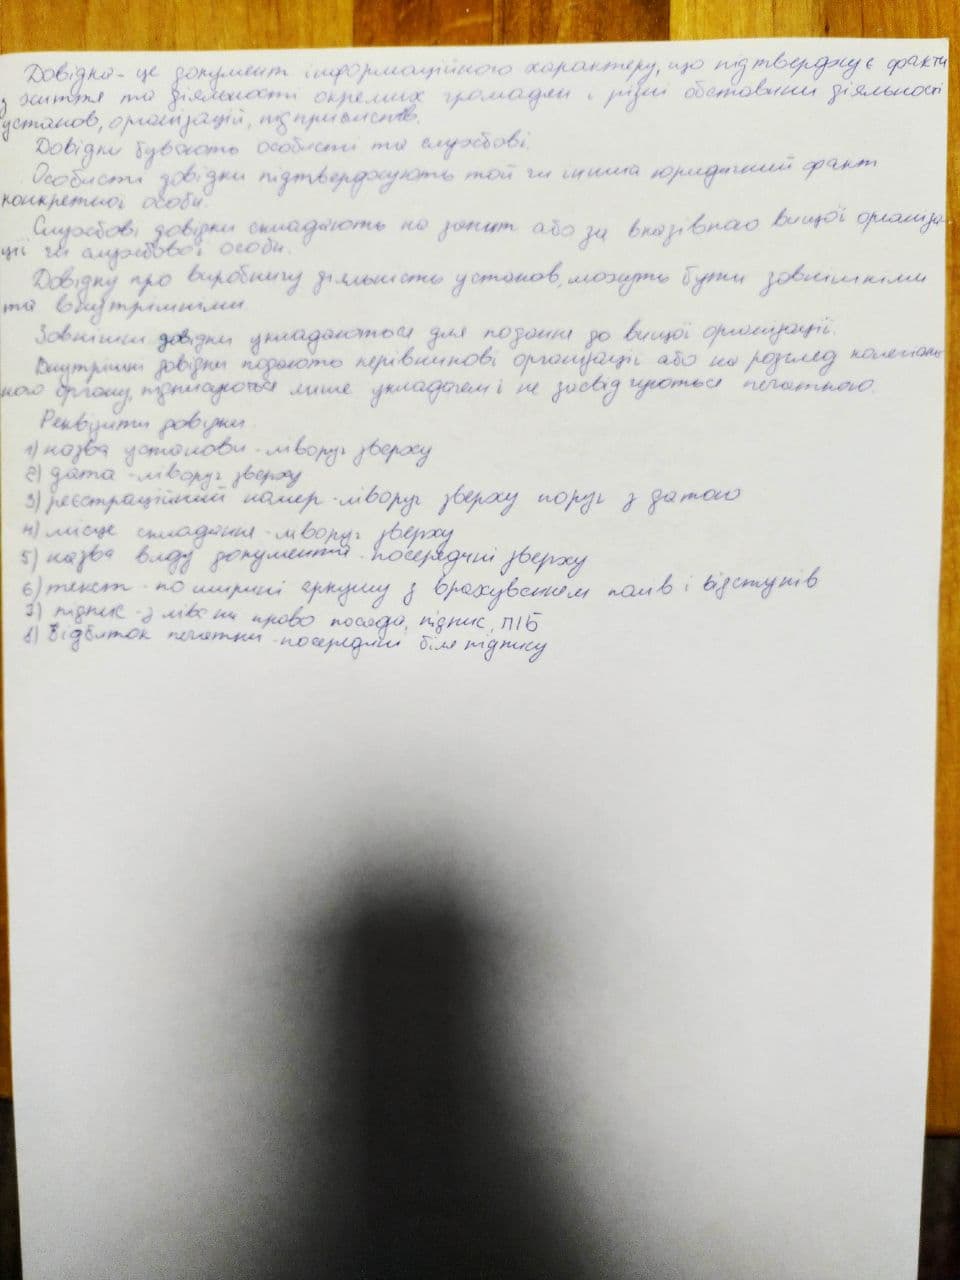 Довідка - це документ інформаційного характеру, що підтверджує факти
з життя та діяльності окремих громадян і різні обставини діяльності
установ, організацій, підприємств.
Довідки бувають особисті та службові.
Особисті довідки підтверджують той чи інший юридичний факт
конкретної особи.
Службові довідки складають на запит або за вказівкою вищої організа-
ції чи службової особи.
Довідку про виробничу діяльність установ, можуть бути зовнішніми
та внутрішніми.
Зовнішні довідки укладаються для подання до вищої організації.
Внутрішні довідки подають керівникові організації або на розгляд колегіаль-
ного органу, підписуються лише укладачем і не засвідчуються печаткою.
Реквізити довідки
1) назва установи - ліворуч зверху
2) дата - ліворуч зверху
3) реєстраційний номер - ліворуч зверху поруч з датою
4) місце складання - ліворуч зверху
5) назва виду документа - посередині зверху
6) текст - по ширині аркушу з врахуванням полів і відступів
7) підпис - з ліва на право посада, підпис, ПІБ
8) Відбиток печатки - посередині біля підпису